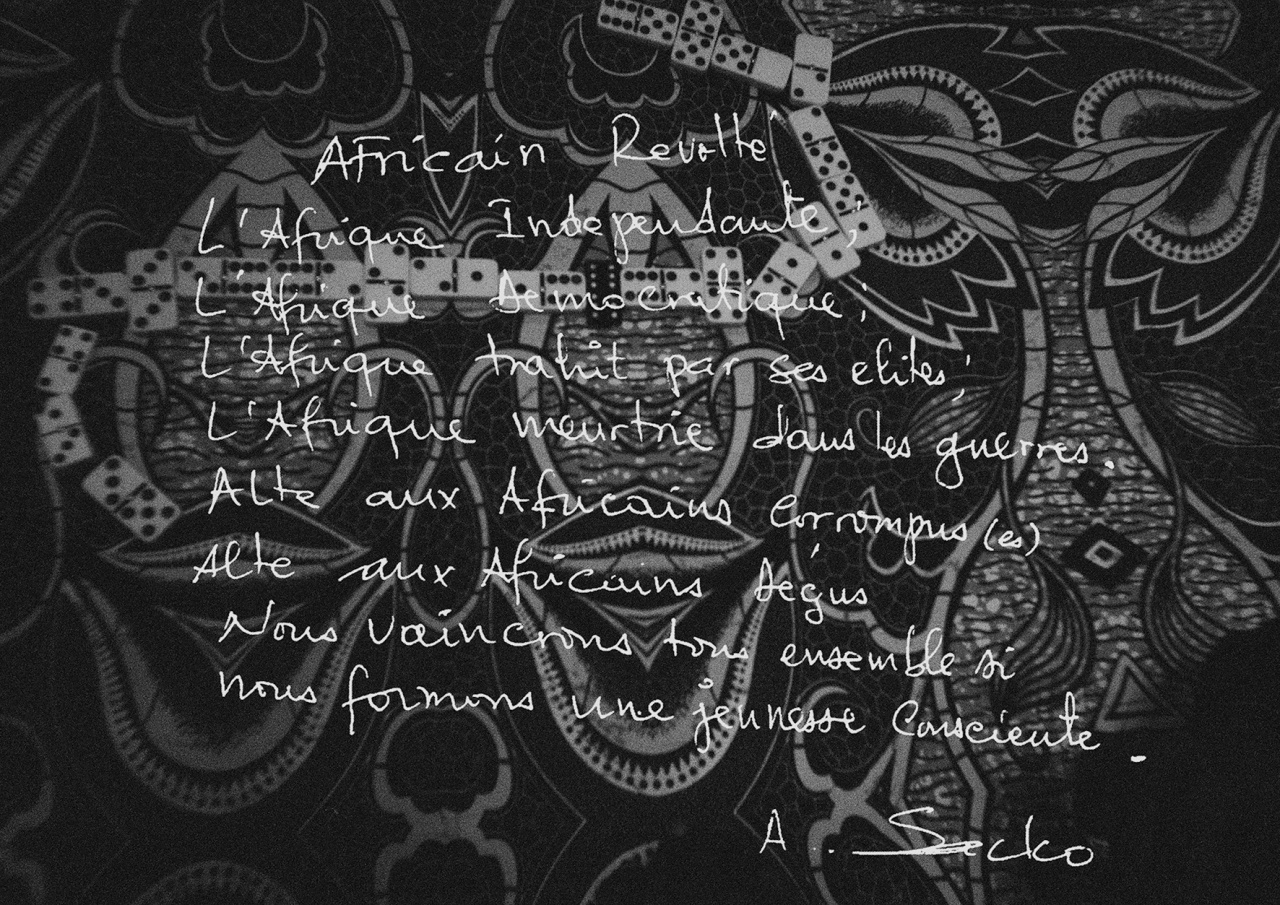 Africain Revolté
L'Afrique Independante;
L'Afrique Democratique;
L'Afrique trahit par ses elites;
L'Afrique meurtrie dans les guerres.
Alte aux Africains Corrompus (es)
Alte aux Africains Dégus
Nous vaincrons tous ensemble si
nous formons une jeunesse Consciente.
A. Sacko